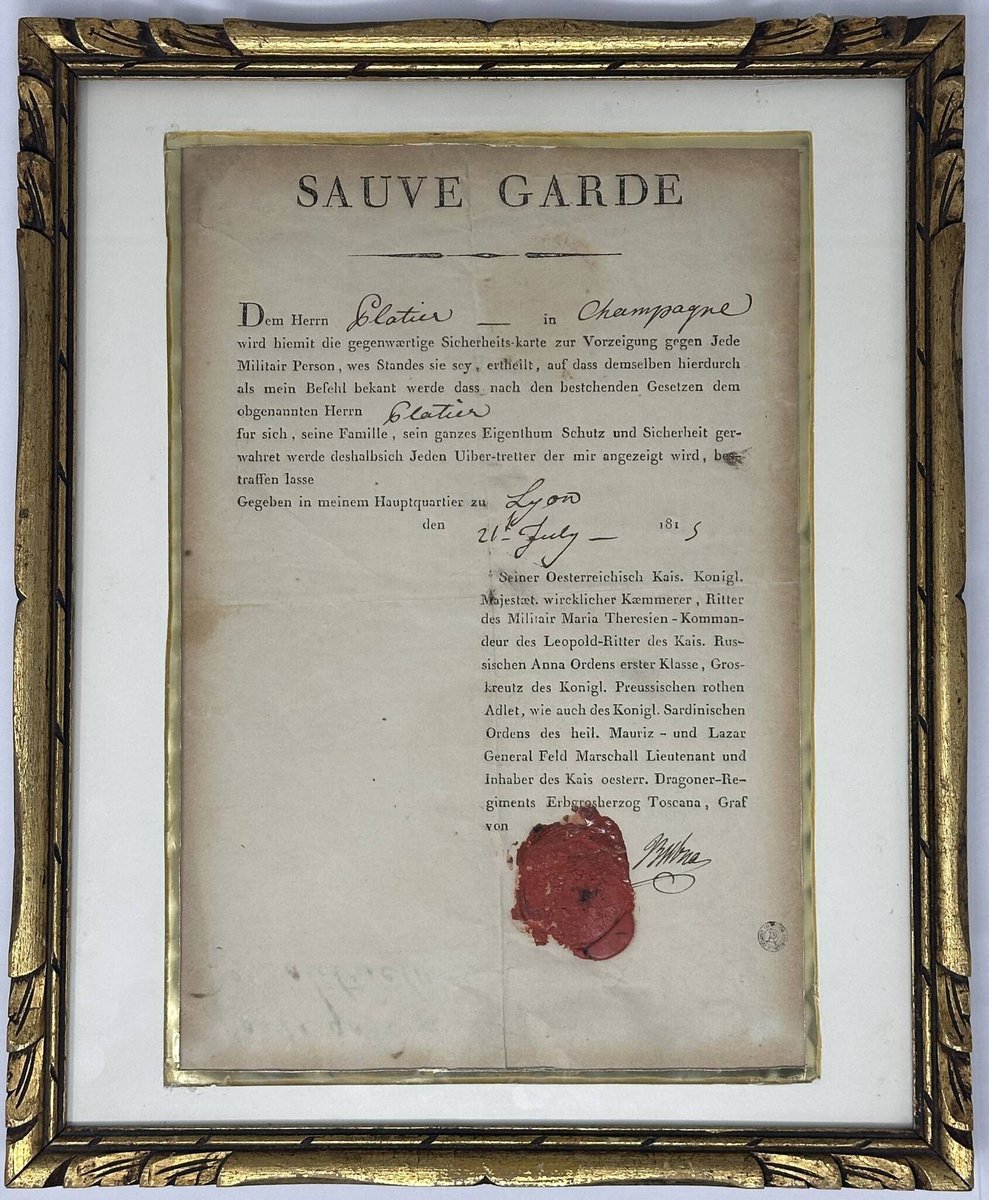 SAUVE GARDE
Dem Herrn Platier — in Champagne
wird hiemit die gegenwærtige Sicherheits-karte zur Vorzeigung gegen Jede
Militair Person, wes Standes sie sey, ertheilt, auf dass demselben hierdurch
als mein Befehl bekant werde dass nach den bestchenden Gesetzen dem
obgenannten Herrn Platier
fur sich, seine Famille, sein ganzes Eigenthum Schutz und Sicherheit ger-
wahret werde deshalbsich Jeden Uiber-tretter der mir angezeigt wird, bes-
traffen lasse
Gegeben in meinem Hauptquartier zu Lyon
den 21t July — 1815
Seiner Oesterreichisch Kais. Konigl.
Majestæt. wircklicher Kæmmerer, Ritter
des Militair Maria Theresien-Komman-
deur des Leopold-Ritter des Kais. Rus-
sischen Anna Ordens erster Klasse, Gros-
kreutz des Konigl. Preussischen rothen
Adlet, wie auch des Konigl. Sardinischen
Ordens des heil. Mauriz- und Lazar
General Feld Marschall Lieutenant und
Inhaber des Kais oesterr. Dragoner-Re-
giments Erbgrosherzog Toscana, Graf
von
Bubna